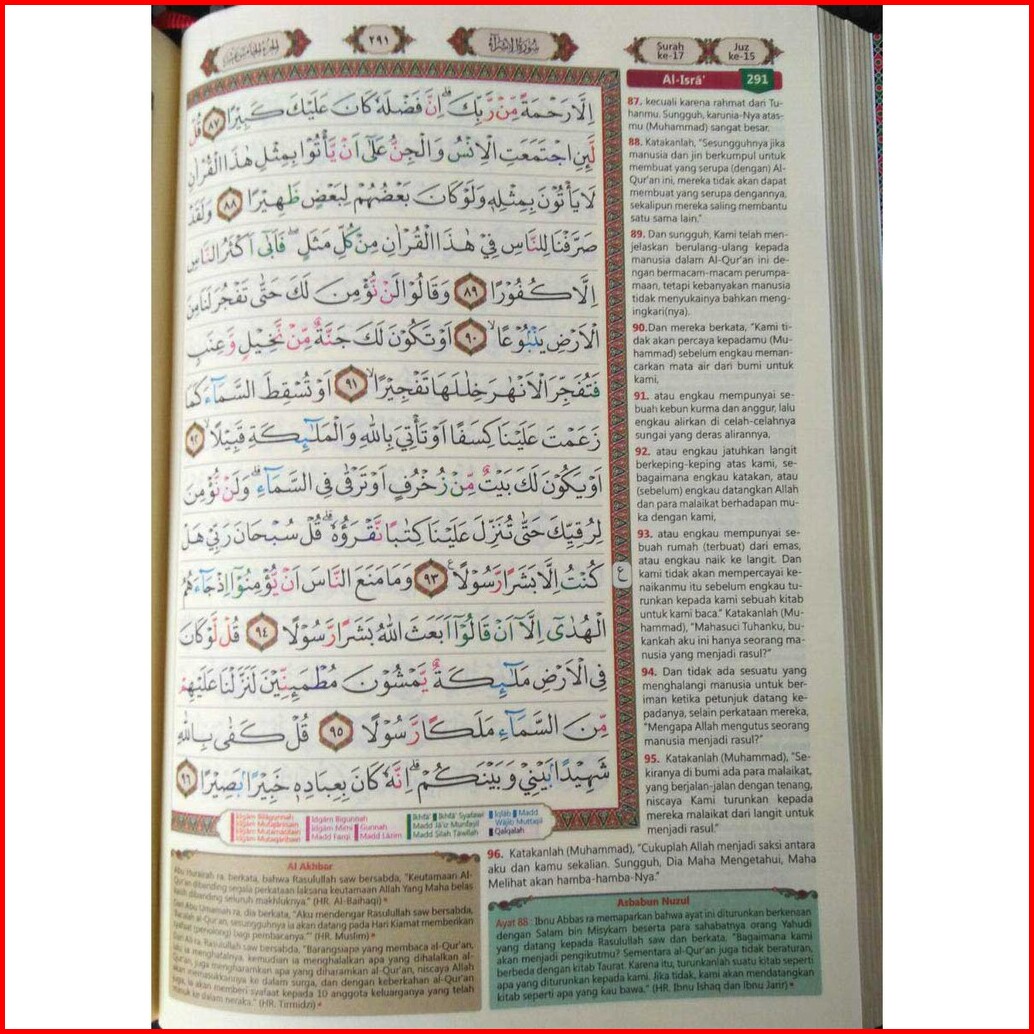 الجزء الخامس عشر
٢٩١
سورة الإسراء
Surah ke-17
Juz ke-15
Al-Isrā'
291
اِلَّا رَحْمَةً مِّنْ رَّبِّكَ ۗاِنَّ فَضْلَهٗ كَانَ عَلَيْكَ كَبِيْرًا ٨٧ قُلْ
لَّىِٕنِ اجْتَمَعَتِ الْاِنْسُ وَالْجِنُّ عَلٰٓى اَنْ يَّأْتُوْا بِمِثْلِ هٰذَا الْقُرْاٰنِ
لَا يَأْتُوْنَ بِمِثْلِهٖ وَلَوْ كَانَ بَعْضُهُمْ لِبَعْضٍ ظَهِيْرًا ٨٨ وَلَقَدْ
صَرَّفْنَا لِلنَّاسِ فِيْ هٰذَا الْقُرْاٰنِ مِنْ كُلِّ مَثَلٍ ۖ فَاَبٰٓى اَكْثَرُ النَّاسِ
اِلَّا كُفُوْرًا ٨٩ وَقَالُوْا لَنْ نُّؤْمِنَ لَكَ حَتّٰى تَفْجُرَ لَنَا مِنَ
الْاَرْضِ يَنْۢبُوْعًا ۙ ٩٠ اَوْ تَكُوْنَ لَكَ جَنَّةٌ مِّنْ نَّخِيْلٍ وَّعِنَبٍ
فَتُفَجِّرَ الْاَنْهٰرَ خِلٰلَهَا تَفْجِيْرًا ۙ ٩١ اَوْ تُسْقِطَ السَّمَاۤءَ كَمَا
زَعَمْتَ عَلَيْنَا كِسَفًا اَوْ تَأْتِيَ بِاللّٰهِ وَالْمَلٰۤىِٕكَةِ قَبِيْلًا ۙ ٩٢
اَوْ يَكُوْنَ لَكَ بَيْتٌ مِّنْ زُخْرُفٍ اَوْ تَرْقٰى فِى السَّمَاۤءِ ۗوَلَنْ نُّؤْمِنَ
لِرُقِيِّكَ حَتّٰى تُنَزِّلَ عَلَيْنَا كِتٰبًا نَّقْرَؤُهٗ ۗ قُلْ سُبْحَانَ رَبِّيْ هَلْ
كُنْتُ اِلَّا بَشَرًا رَّسُوْلًا ۚ ٩٣ وَمَا مَنَعَ النَّاسَ اَنْ يُّؤْمِنُوْٓا اِذْ جَاۤءَهُمُ
ع
الْهُدٰٓى اِلَّآ اَنْ قَالُوْٓا اَبَعَثَ اللّٰهُ بَشَرًا رَّسُوْلًا ٩٤ قُلْ لَّوْ كَانَ
فِى الْاَرْضِ مَلٰۤىِٕكَةٌ يَّمْشُوْنَ مُطْمَىِٕنِّيْنَ لَنَزَّلْنَا عَلَيْهِمْ
مِّنَ السَّمَاۤءِ مَلَكًا رَّسُوْلًا ٩٥ قُلْ كَفٰى بِاللّٰهِ
شَهِيْدًاۢ بَيْنِيْ وَبَيْنَكُمْ ۗاِنَّهٗ كَانَ بِعِبَادِهٖ خَبِيْرًاۢ بَصِيْرًا ٩٦
87. kecuali karena rahmat dari Tu-
hanmu. Sungguh, karunia-Nya atas-
mu (Muhammad) sangat besar.
88. Katakanlah, "Sesungguhnya jika
manusia dan jin berkumpul untuk
membuat yang serupa (dengan) Al-
Qur'an ini, mereka tidak akan dapat
membuat yang serupa dengannya,
sekalipun mereka saling membantu
satu sama lain."
89. Dan sungguh, Kami telah men-
jelaskan berulang-ulang kepada
manusia dalam Al-Qur'an ini de-
ngan bermacam-macam perumpa-
maan, tetapi kebanyakan manusia
tidak menyukainya bahkan meng-
ingkari(nya).
90.Dan mereka berkata, "Kami ti-
dak akan percaya kepadamu (Mu-
hammad) sebelum engkau meman-
carkan mata air dari bumi untuk
kami,
91. atau engkau mempunyai se-
buah kebun kurma dan anggur, lalu
engkau alirkan di celah-celahnya
sungai yang deras alirannya,
92. atau engkau jatuhkan langit
berkeping-keping atas kami, se-
bagaimana engkau katakan, atau
(sebelum) engkau datangkan Allah
dan para malaikat berhadapan mu-
ka dengan kami,
93. atau engkau mempunyai se-
buah rumah (terbuat) dari emas,
atau engkau naik ke langit. Dan
kami tidak akan mempercayai ke-
naikanmu itu sebelum engkau tu-
runkan kepada kami sebuah kitab
untuk kami baca." Katakanlah (Mu-
hammad), "Mahasuci Tuhanku, bu-
kankah aku ini hanya seorang ma-
nusia yang menjadi rasul?"
94. Dan tidak ada sesuatu yang
menghalangi manusia untuk ber-
iman ketika petunjuk datang ke-
padanya, selain perkataan mereka,
"Mengapa Allah mengutus seorang
manusia menjadi rasul?"
95. Katakanlah (Muhammad), "Se-
kiranya di bumi ada para malaikat,
yang berjalan-jalan dengan tenang,
niscaya Kami turunkan kepada
mereka malaikat dari langit untuk
menjadi rasul."
96. Katakanlah (Muhammad), "Cukuplah Allah menjadi saksi antara
aku dan kamu sekalian. Sungguh, Dia Maha Mengetahui, Maha
Melihat akan hamba-hamba-Nya."
Idgām Bilagunnah
Idgām Mutajānisain
Idgām Mutamāṡilain
Idgām Mutaqāribain
Idgām Bigunnah
Idgām Mimi Gunnah
Madd Farqi Madd Lāzim
Ikhfā' Ikhfā' Syafawi
Madd Jā'iz Munfaṣil
Madd Ṣilah Ṭawīlah
Iqlāb Madd
Wājib Muttaṣil
Qalqalah
Al Akhbar
Abu Hurairah ra. berkata, bahwa Rasulullah saw bersabda, "Keutamaan Al-
Qur'an dibanding segala perkataan laksana keutamaan Allah Yang Maha belas
kasih dibanding seluruh makhluknya." (HR. Al-Baihaqi)
Dari Abu Umamah ra, dia berkata, "Aku mendengar Rasulullah saw bersabda,
'Bacalah al-Qur'an, sesungguhnya ia akan datang pada Hari Kiamat memberikan
syafaat (penolong) bagi pembacanya.'" (HR. Muslim)
Dari Ali ra. Rasulullah saw bersabda, "Barangsiapa yang membaca al-Qur'an,
lalu ia menghafalnya, kemudian ia menghalalkan apa yang dihalalkan al-
Qur'an, juga mengharamkan apa yang diharamkan al-Qur'an, niscaya Allah
akan memasukkannya ke dalam surga, dan dengan keberkahan al-Qur'an
juga, ia akan memberi syafaat kepada 10 anggota keluarganya yang telah
masuk ke dalam neraka." (HR. Tirmidzi)
Asbabun Nuzul
Ayat 88 : Ibnu Abbas ra memaparkan bahwa ayat ini diturunkan berkenaan
dengan Salam bin Misykam beserta para sahabatnya orang Yahudi
yang datang kepada Rasulullah saw dan berkata, "Bagaimana kami
akan menjadi pengikutmu? Sementara al-Qur'an juga tidak beraturan,
berbeda dengan kitab Taurat. Karena itu, turunkanlah suatu kitab seperti
apa yang diturunkan kepada kami. Jika tidak, kami akan mendatangkan
kitab seperti apa yang kau bawa." (HR. Ibnu Ishaq dan Ibnu Jarir)